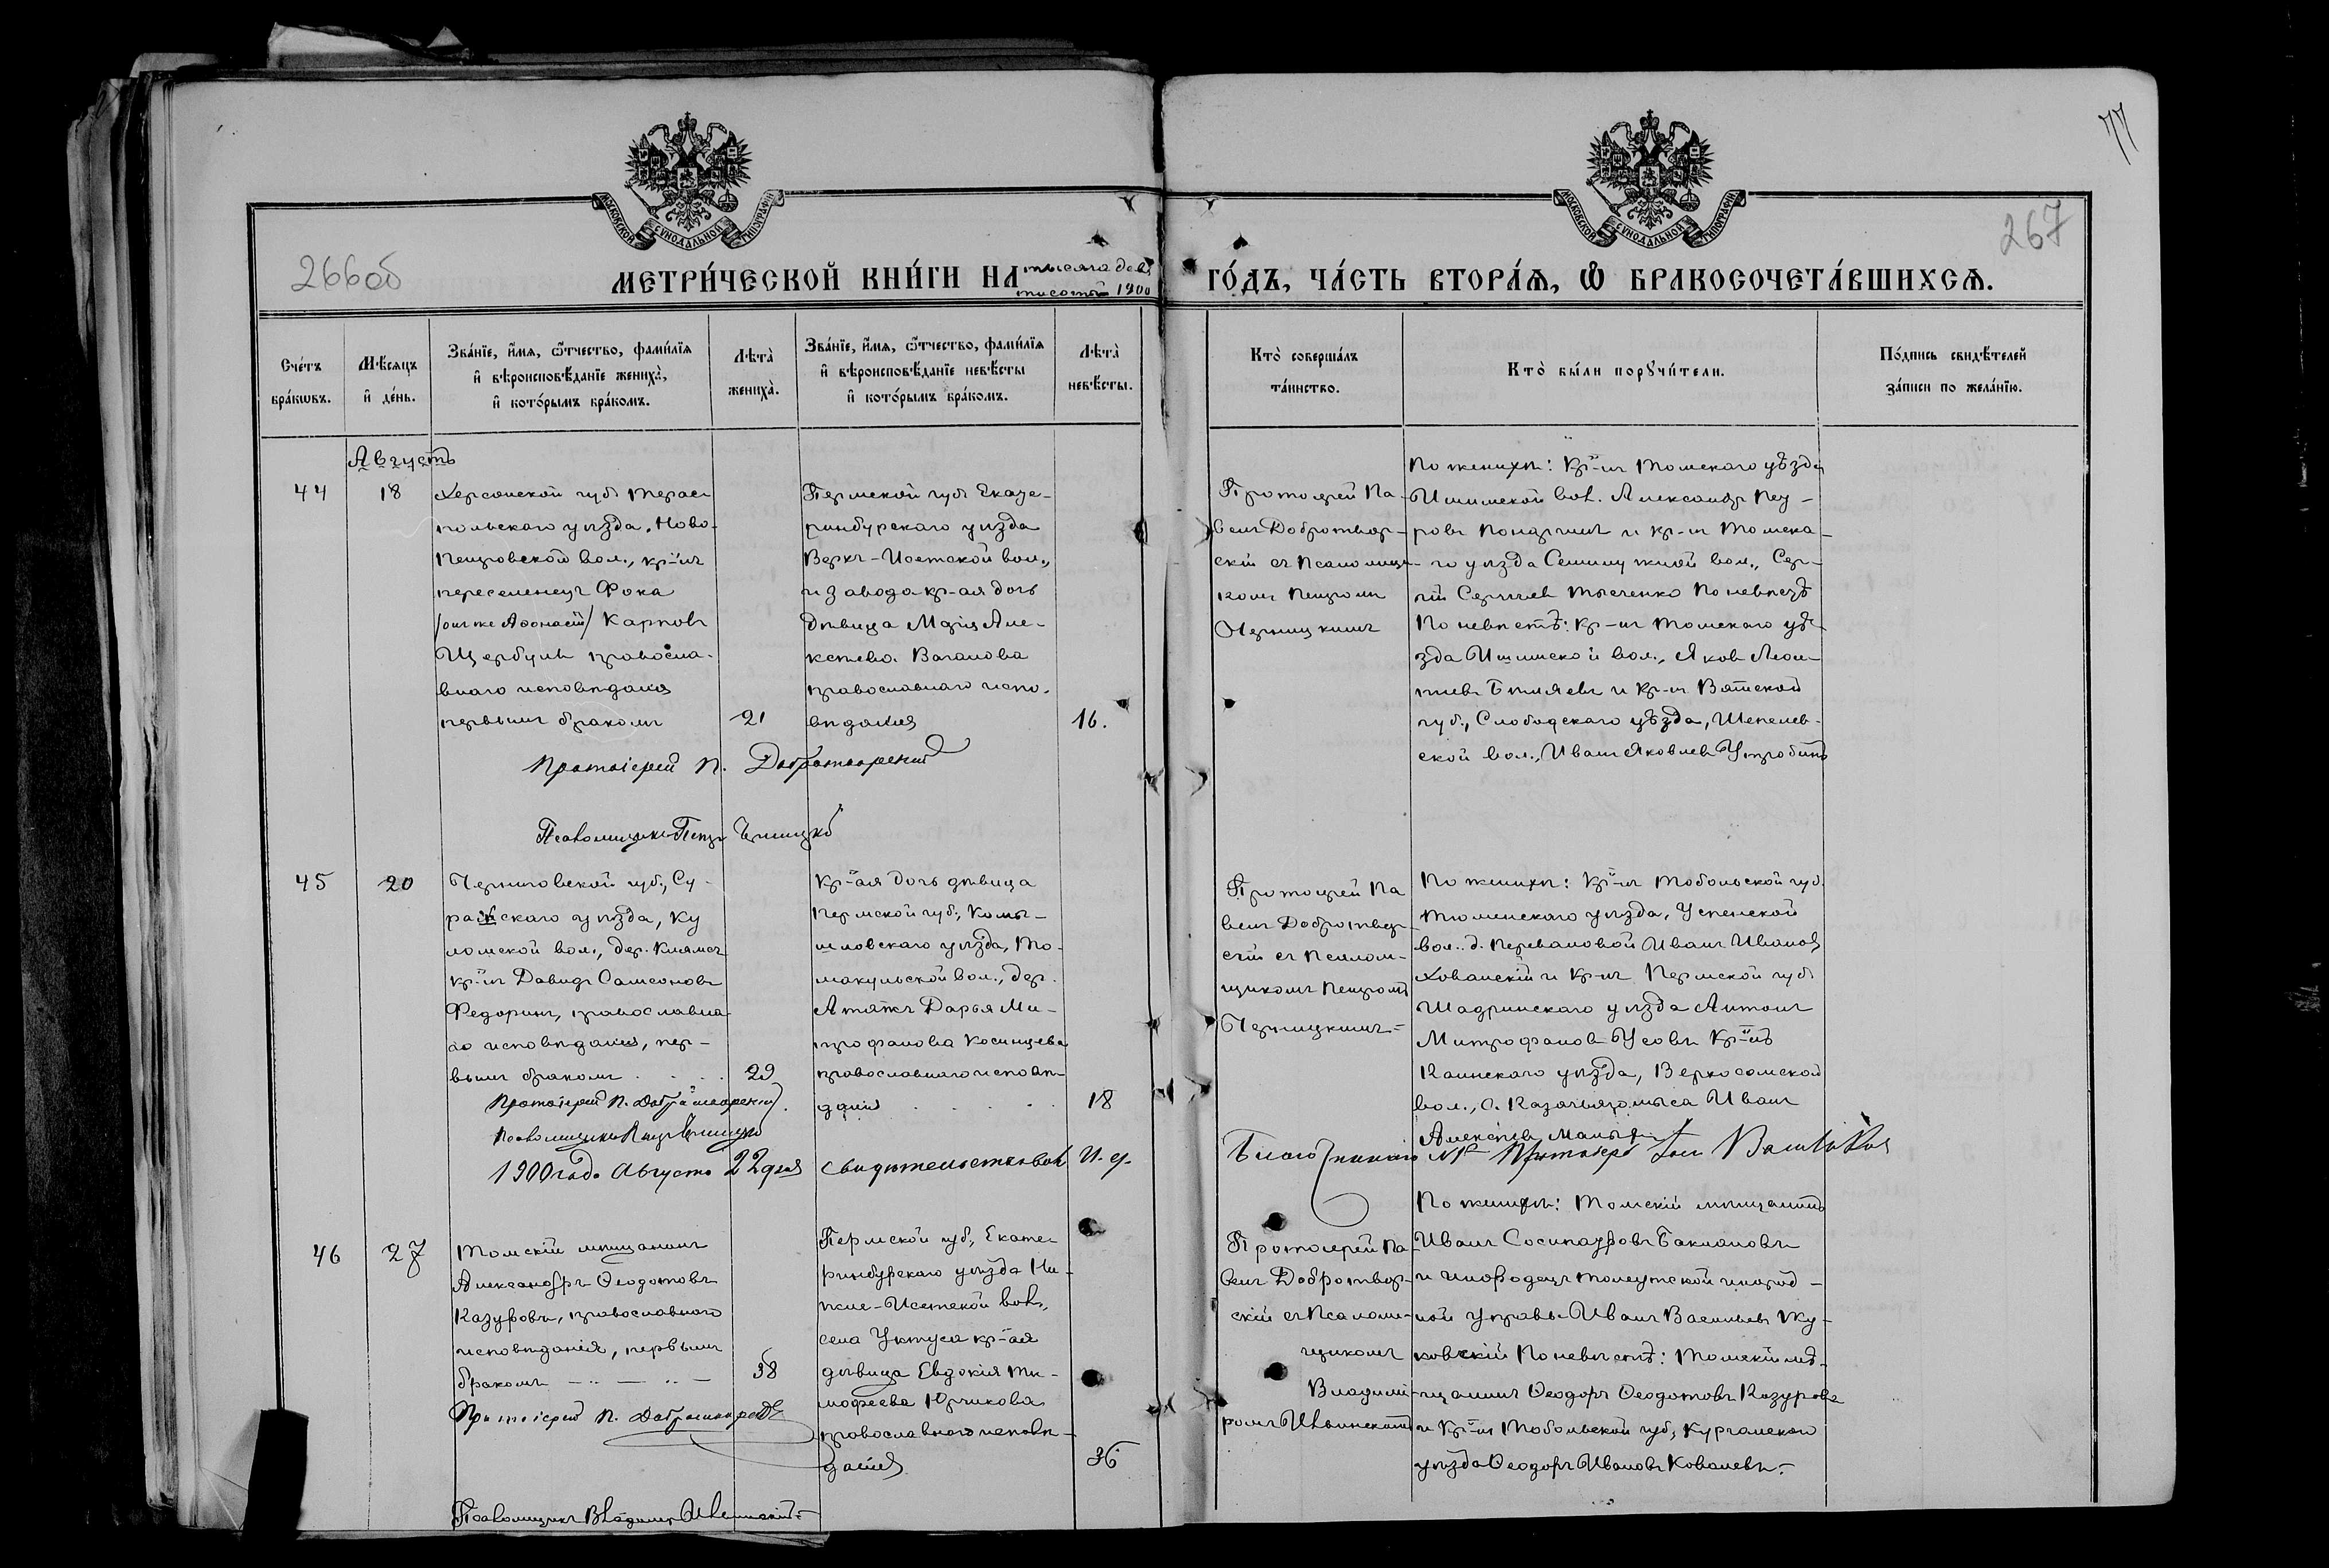 77
МОСКОВСКОЙ СѴНОДАЛЬНОЙ ТИПОГРАФІИ
МОСКОВСКОЙ СѴНОДАЛЬНОЙ ТИПОГРАФІИ
266об
267
МЕТРИ́ЧЕСКОЙ КНИ́ГИ НА тысяча девятисотый 1900
ГО́ДЪ, ЧА́СТЬ ВТОРА́Я, Ѿ БРАКОСОЧЕТА́ВШИХСЯ.
Сче́тъ бра́кѡвъ.
Мѣ́сяцъ и҆ де́нь.
Зва́нїе, и҆́мя, ѻ҆́тчество, фами́лїя и҆ вѣроисповѣ́данїе жениха̀, и҆ кото́рымъ бра́комъ.
Лѣта̀ жениха̀.
Зва́нїе, и҆́мя, ѻ҆́тчество, фами́лїя и҆ вѣроисповѣ́данїе невѣ́сты и҆ кото́рымъ бра́комъ.
Лѣта̀ невѣ́сты.
Кто̀ соверша́лъ та́инство.
Кто̀ бы́ли порꙋчи́тели.
По́дпись свидѣ́телей за́писи по жела́нїю.
Августъ
44
18
Херсонской губ. Тирас
польскаго уѣзда, Ново-
Петровской вол., кр-нъ
переселенецъ Фока
/онъ же Афонасій/ Карповъ
Щербулъ православ-
наго исповѣданія
первымъ бракомъ
21
Пермской губ. Екате-
ринбургскаго уѣзда
Верхъ-Исетской вол.,
и завода кр-ая дочь
дѣвица Марія Але-
ксѣева Ваганова
православнаго испо-
вѣданія
16.
Протоіерей Па-
велъ Добротвор-
скій съ псаломщи-
комъ Петромъ
Черницкимъ
По женихѣ: Кр-нъ Томскаго уѣзда
Ишимской вол. Александр Пет-
ровъ и кр-нъ Томска-
го уѣзда Семилужной вол., Сер-
гій Сергѣев Тысченко
По невѣстѣ: Кр-нъ Томскаго уѣ-
зда Ишимской вол., Яков Леон-
тьевъ Бѣляевъ и кр-нъ Вятской
губ., Слободскаго уѣзда, Шепелев-
ской вол., Иванъ Яковлевъ Утробинъ
Протоіерей П. Добротворскій
Псаломщикъ Петръ Черницкій
45
20
Черниговской губ., Су-
ражскаго уѣзда, Ку
ломской вол., дер.
кр-нъ Давидъ Самсоновъ
Федоринъ, православна-
го исповѣданія, пер-
вымъ бракомъ
29
Кр-ая дочь дѣвица
Пермской губ., Камы-
шловскаго уѣзда, То-
макульской вол., дер.
Атяжъ Дарья Ми-
трофанова Косинцева
православнаго исповѣ-
данія
18
Протоіерей Па
велъ Добротвор-
скій съ псалом-
щикомъ Петромъ
Черницкимъ
По женихѣ: Кр-нъ Тобольской губ.
Тюменскаго уѣзда, Успенской
вол. д. Переваловой Иванъ Иванов
Хованскій и кр-нъ Пермской губ.
Шадринскаго уѣзда Антонъ
Митрофанов Усовъ Кр-нъ
Каинскаго уѣзда, Верхоомской
вол., с. Казачьягомыса Иванъ
Алексѣевъ
Протоіерей П. Добротворскій.
Псаломщикъ Петръ Черницкій
1900 года Августа 22 дня свидѣтельствовалъ И. д.
Благочиннаго №1 Протоіерей
46
27
Томскій мѣщанинъ
Александръ Ѳеодотовъ
Казуровъ, православнаго
исповѣданія, первымъ
бракомъ
38
Пермской губ., Екате
ринбургскаго уѣзда Ни-
жне-Исетской вол.,
села Уктуса кр-ая
дѣвица Евдокія Ти-
мофеева Юрчикова
православнаго исповѣ-
данія
36
Протоіерей Па-
велъ Добротвор-
скій съ псалом-
щикомъ
Владими-
ромъ Ильинскимъ
По женихѣ: Томскій мѣщанинъ
Иванъ Сосипатровъ Баклановъ
и инородецъ Телеутской инород-
ной управы Иванъ Васильевъ Жу-
ковскій По невѣстѣ: Томскій мѣ-
щанинъ Ѳеодоръ Ѳеодотовъ Казуровъ
и Кр-нъ Тобольской губ., Курганскаго
уѣзда Ѳеодоръ Ивановъ Ковалевъ.
Протоіерей П. Добротворскій
Псаломщикъ Владимиръ Ильинскій